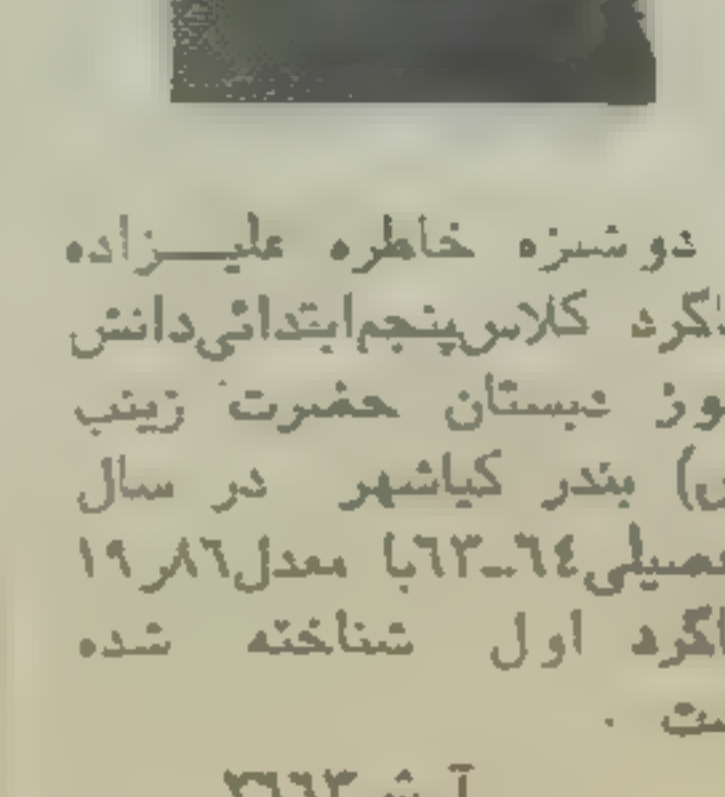 دوشیزه خاطره علیـــزاده
اگرد کلاس پنجم ابتدائی دانش
وز دبستان حضرت زینب
س) بندر کیاشهر در سال
صیلی ٦٤ــ٦٣ با معدل ١٩٫٨٦
اگرد اول شناخته شده
ست .